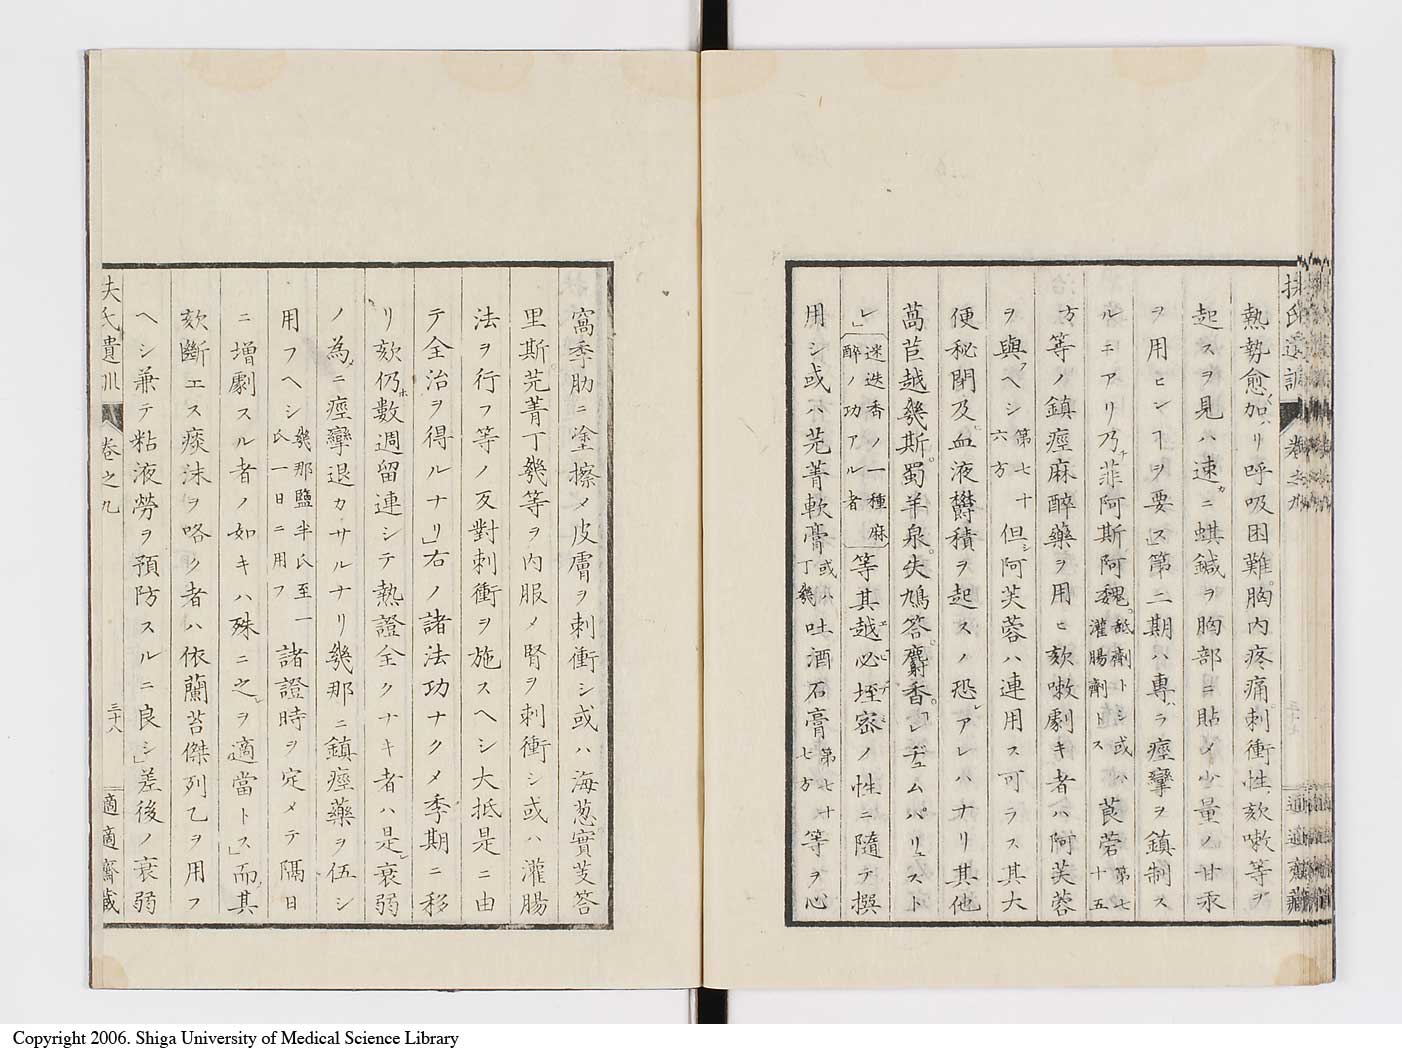 熱勢愈加ハリ呼吸困難。胸内疼痛。刺衝性欬嗽等ヲ
起スヲ見ハ速カニ蜞鍼ヲ胸部ニ貼メ少量ノ甘汞
ヲ用ヒンヿヲ要ス」第二期ハ專ハラ痙攣ヲ鎮制ス
ルニアリ乃チ菲阿斯阿魏。舐劑トシ或ハ灌腸劑トス 莨菪第七十五
方等ノ鎮痙麻醉藥ヲ用ヒ欬嗽劇キ者ハ阿芙蓉
ヲ與フヘシ第七十六方 但シ阿芙蓉ハ連用ス可ラス其大
便秘閉及ヒ血液欝積ヲ起スノ恐レアレハナリ其他
萵苣越幾斯。蜀羊泉。失鳩答。麝香。「レヂュムパリュスト
レ」迷迭香ノ一種麻醉ノ功アル者 等其越必垤密ノ性ニ隨テ撰
用シ或ハ芫菁軟膏或ハ丁幾 吐酒石膏第七十七方 等ヲ心
窩季肋ニ塗擦メ皮膚ヲ刺衝シ或ハ海葱實芰答
里斯。芫菁丁幾等ヲ内服メ腎ヲ刺衝シ或ハ灌腸
法ヲ行フ等ノ反對刺衝ヲ施スヘシ大抵是ニ由
テ全治ヲ得ルナリ」右ノ諸法功ナクメ季期ニ移
リ欬仍ホ數週留連シテ熱證全クナキ者ハ是レ衰弱
ノ為メニ痙攣退カサルナリ幾那ニ鎮痙藥ヲ伍シ
用フヘシ幾那鹽半氏至一氏一日ニ用フ 諸證時ヲ定メテ隔日
ニ増劇スル者ノ如キハ殊ニ之レヲ適當トス」而メ其
欬斷エス痰沫ヲ咯ク者ハ依蘭苔傑列乙ヲ用フ
ヘシ兼テ粘液勞ヲ預防スルニ良シ」差後ノ衰弱
夫氏遺訓 卷之九 三十八 適適齋藏